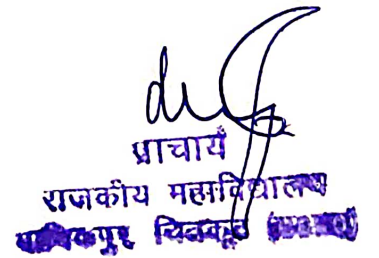 प्राचार्य
राजकीय महाविद्यालय
मानिकपुर चित्रकूट